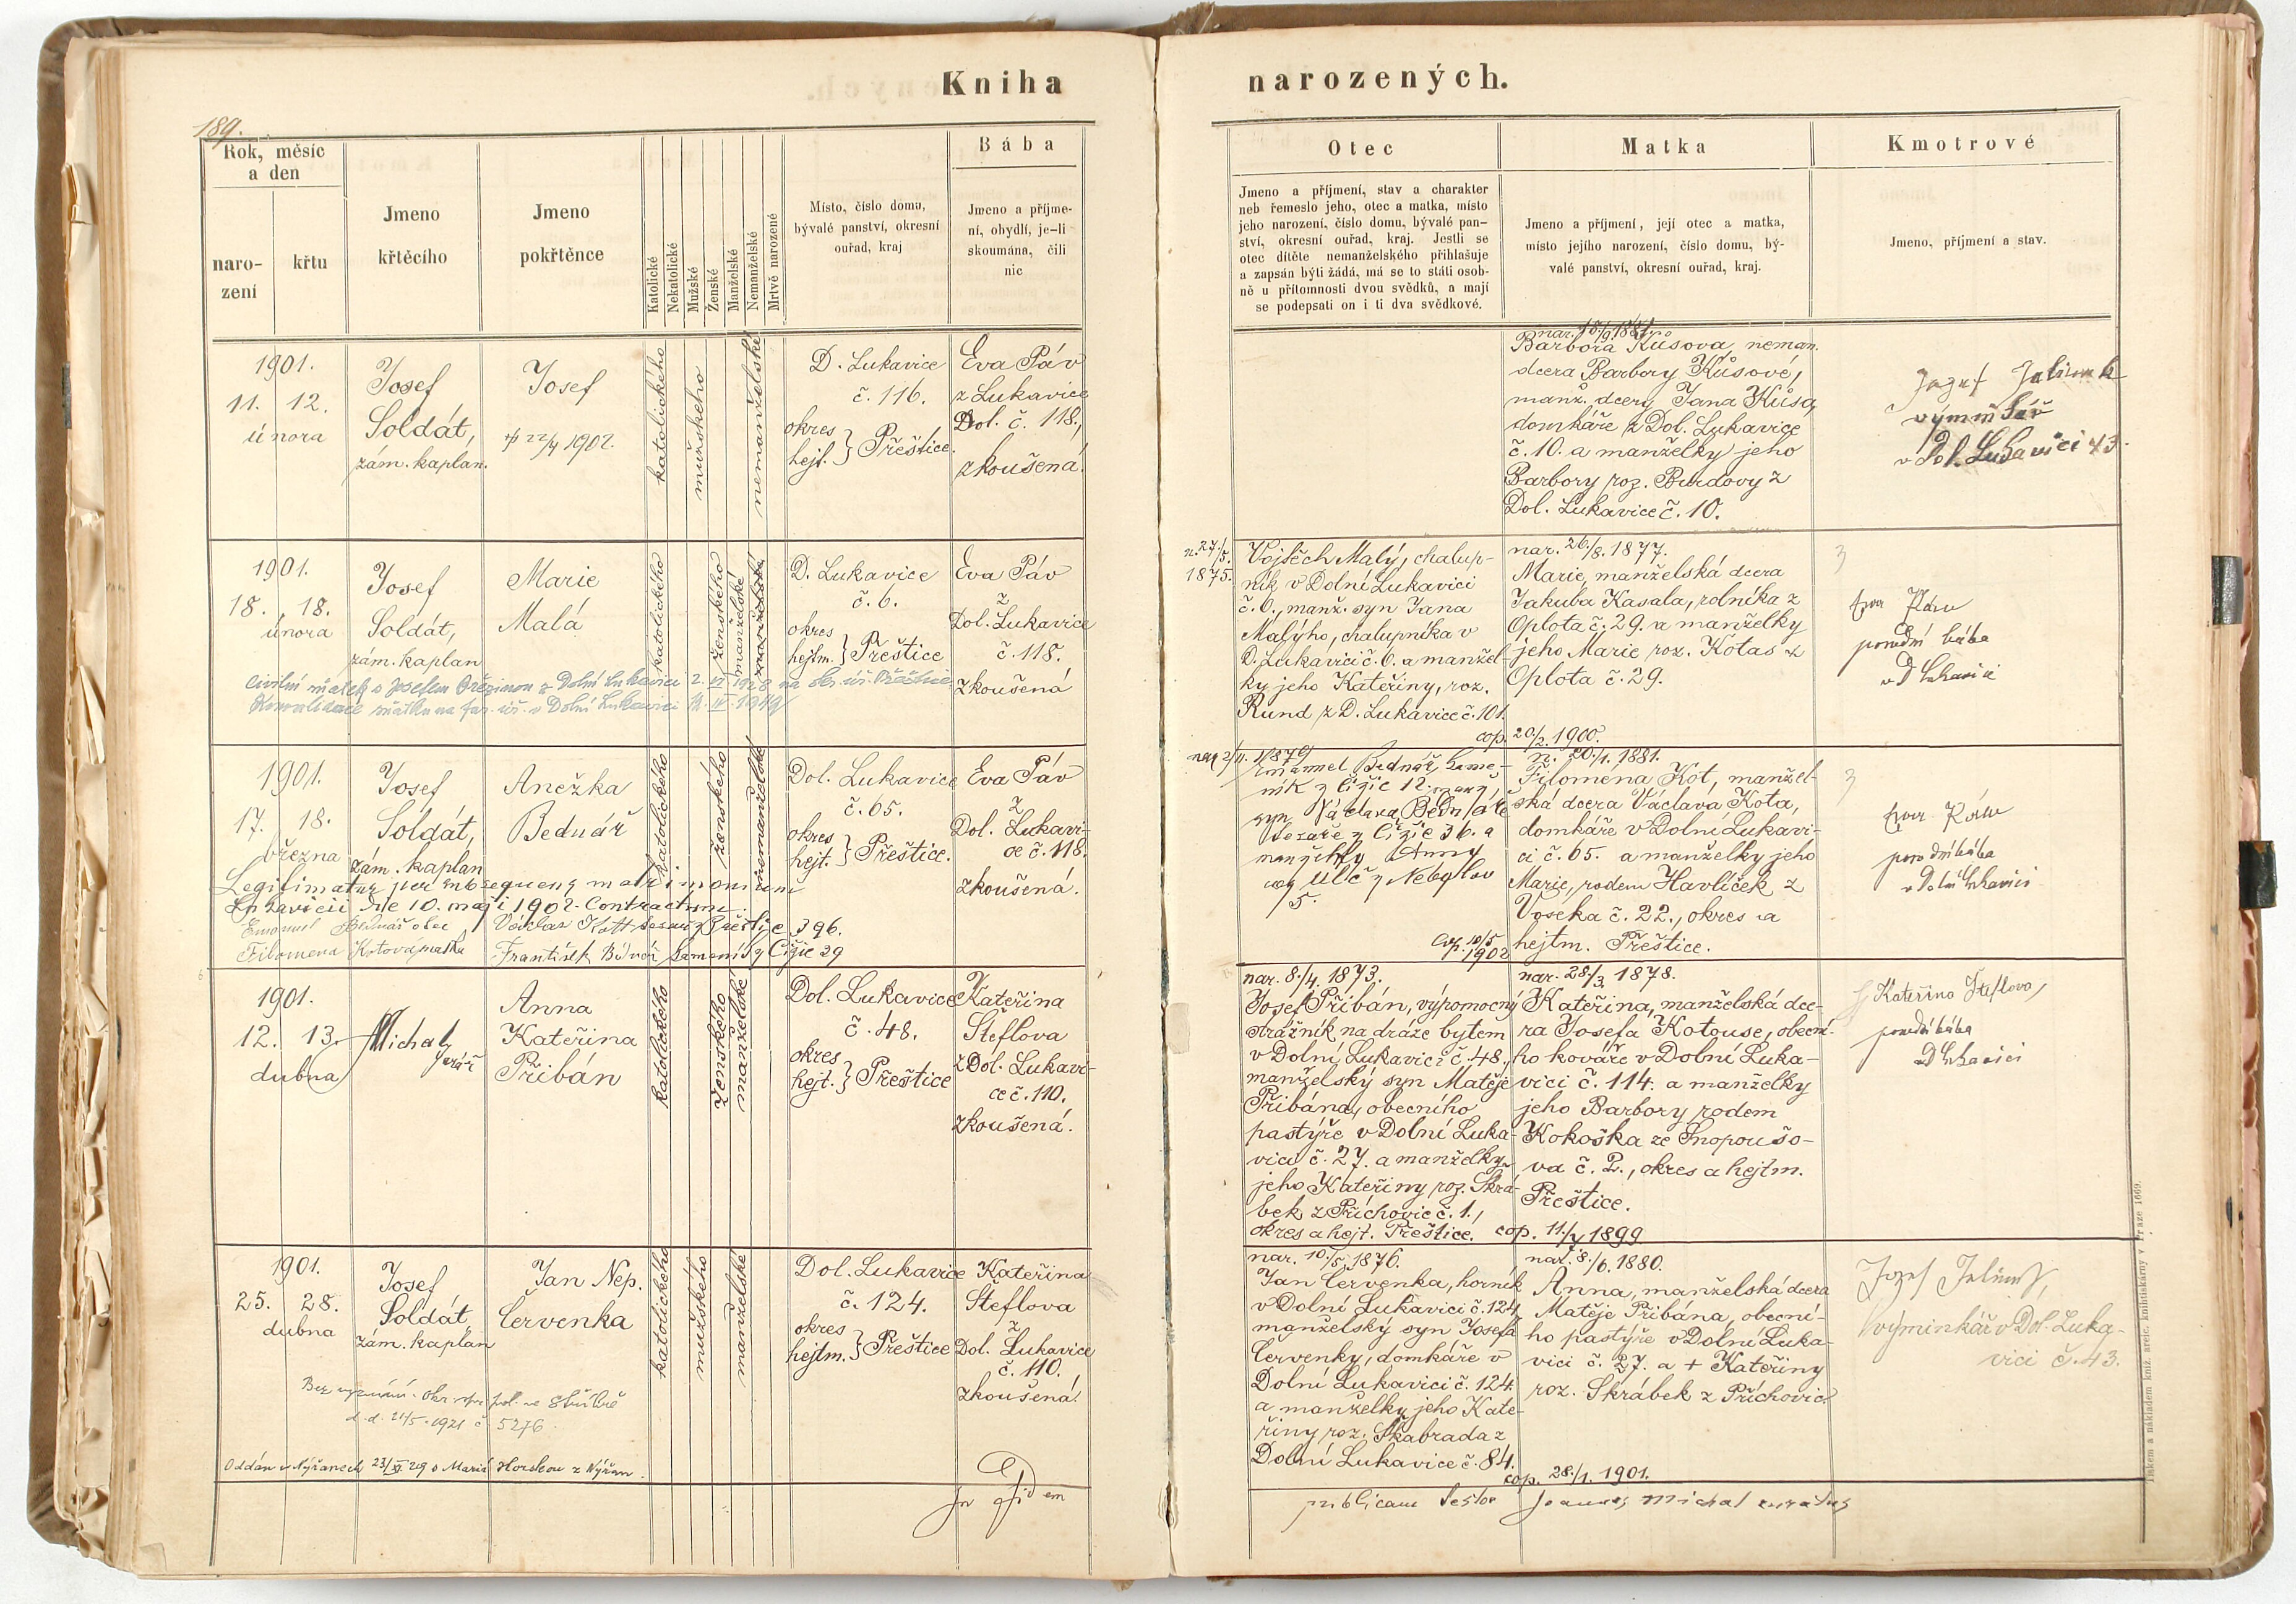 Kniha
189.
Rok, měsíc
a den
naro-
zení
křtu
Jmeno
křtěcího
Jmeno
pokřtěnce
Katolické
Nekatolické
Mužské
Ženské
Manželské
Nemanželské
Mrtvě narozené
Místo, číslo domu,
bývalé panství, okresní
ouřad, kraj
Bába
Jmeno a příjme-
ní, obydlí, je-li
skoumána, čili
nic
1901.
11. 12.
února
Josef
Soldát,
zám. kaplan.
Josef
22/4 1902.
katolického
mužského
nemanželské
D. Lukavice
č. 116.
okres
hejt. } Přeštice.
Eva Páv
z Lukavice
Dol. č. 118.,
zkoušená.
1901.
18. 18.
února
Josef
Soldát,
zám. kaplan
Marie
Malá
katolického
ženského
manželské
D. Lukavice
č. 6.
okres
hejtm. } Přeštice
Eva Páv
z
Dol. Lukavice
č. 118.
zkoušená
civilní sňatek s Josefem Březinou z Dolní Lukavice 2. VI 1928 na okr. úř. Přeštice
Konvalidace sňatku na far. úř. v Dolní Lukavici IV. 1949
1901.
17. 18.
března
Josef
Soldát,
zám. kaplan
Anežka
Bednář
katolického
ženského
nemanželské
Dol. Lukavice
č. 65.
okres
hejt. } Přeštice.
Eva Páv
z
Dol. Lukavi-
ce č. 118.
zkoušená.
Legitimatur per subsequens matrimonium
Lukavicii die 10. maji 1902 contractum.
Emanuel Bednář otec Václav Kott tesař z Přeštic 396.
Filomena Kotová matka František Bednář kameník z Čižic 29
1901.
12. 13.
dubna
Michal
farář
Anna
Kateřina
Přibáň
katolického
ženského
manželské
Dol. Lukavice
č. 48.
okres
hejt. } Přeštice
Kateřina
Šteflova
z Dol. Lukavi-
ce č. 110.
zkoušená.
1901.
25. 28.
dubna
Josef
Soldát
zám. kaplan
Jan Nep.
Červenka
katolického
mužského
manželské
Dol. Lukavice
č. 124.
okres
hejtm. } Přeštice
Kateřina
Šteflova
z
Dol. Lukavice
č. 110.
zkoušená.
Bez vyznání. Okr. spr. pol. ve Stříbře
d. d. 21/5. 1921 č 5276.
Oddán v Nýřanech 23/XI. 29 s Marií Horskou z Nýřan.
In fidem
narozených.
Otec
Jmeno a příjmení, stav a charakter
neb řemeslo jeho, otec a matka, místo
jeho narození, číslo domu, bývalé pan-
ství, okresní ouřad, kraj. Jestli se
otec dítěte nemanželského přihlašuje
a zapsán býti žádá, má se to státi osob-
ně u přítomnosti dvou svědků, a mají
se podepsati on i ti dva svědkové.
Matka
Jmeno a příjmení, její otec a matka,
místo jejího narození, číslo domu, bý-
valé panství, okresní ouřad, kraj.
Kmotrové
Jmeno, příjmení a stav.
nar. 18/9 1881
Barbora Kůsova, neman.
dcera Barbory Kůsové,
manž. dcery Jana Kůsa,
domkáře z Dol. Lukavice
č. 10. a manželky jeho
Barbory roz. Burdovy z
Dol. Lukavice č. 10.
Jozef Jelínek
výminkář
v Dol. Lukavici 43.
n. 27./5.
1875.
Vojtěch Malý, chalup-
ník v Dolní Lukavici
č. 6., manž. syn Jana
Malýho, chalupníka v
D. Lukavici č. 6. a manžel-
ky jeho Kateřiny, roz.
Rund z D. Lukavice č. 101.
nar. 26./8. 1877.
Marie, manželská dcera
Jakuba Kasala, rolníka z
Oplota č. 29. a manželky
jeho Marie roz. Kotas z
Oplota č. 29.
cop. 20/2. 1900.
Eva Páv
porodní bába
v D Lukavici
nar 2/11. 1879
Emanuel Bednář, kame-
ník z Čižic 12. manž.
syn Václava Bednáře
tesaře z Čižic 36. a
manželky Anny
roz Ulč z Nebylov
5.
n. 20./1. 1881.
Filomena Kot, manžel-
ská dcera Václava Kota,
domkáře v Dolní Lukavi-
ci č. 65. a manželky jeho
Marie, rodem Havlíček z
Voseka č. 22., okres a
hejtm. Přeštice.
Cop. 10/5 1902
Eva Páv
porodní bába
v Dolní Lukavici
nar. 8./4. 1873.
Josef Přibáň, výpomocný
strážník na dráze bytem
v Dolní Lukavici č. 48.,
manželský syn Matěje
Přibáně, obecního
pastýře v Dolní Luka-
vici č. 27. a manželky
jeho Kateřiny roz. Skrá-
bek z Příchovic č. 1.,
okres a hejt. Přeštice.
nar. 28./3. 1878.
Kateřina, manželská dce-
ra Josefa Kotouse, obecní-
ho kováře v Dolní Luka-
vici č. 114. a manželky
jeho Barbory rodem
Kokoška ze Snopoušo-
va č. 2., okres a hejtm.
Přeštice.
cop. 11./7 1899
Kateřina Šteflova,
porodní bába
v D Lukavici
nar. 10./5. 1876.
Jan Červenka, horník
v Dolní Lukavici č. 124,
manželský syn Josefa
Červenky, domkáře v
Dolní Lukavici č. 124.
a manželky jeho Kate-
řiny roz. Škabrada z
Dolní Lukavice č. 84.
nar. 8./6. 1880.
Anna, manželská dcera
Matěje Přibáně, obecní-
ho pastýře v Dolní Luka-
vici č. 27. a + Kateřiny
roz. Skrábek z Příchovic.
cop. 28./1. 1901.
Jozef Jelínek,
výminkář v Dol. Luka-
vici č. 43.
publicam testor Joannes Michal curatus
Tiskem a nákladem kníž. arcib. knihtiskárny v Praze 1669.